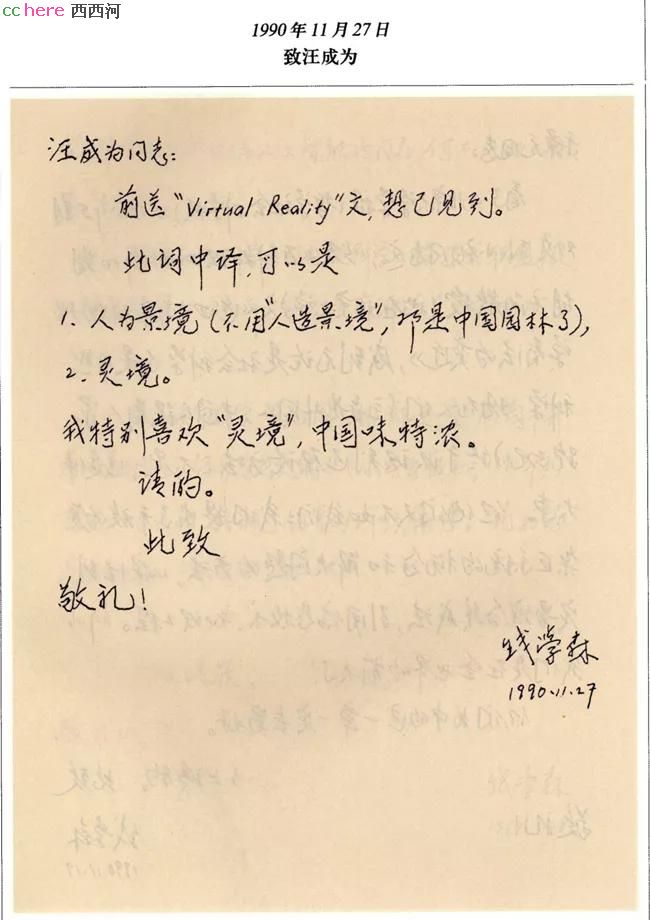 cchere 西西河
1990年11月27日
致汪成为
汪成为同志:
前送“Virtual Reality”文,想已见到。
此词中译,可以是
1. 人为景境(不用“人造景境”,那是中国园林了),
2. 灵境。
我特别喜欢“灵境”,中国味特浓。
请酌。
此致
敬礼!
钱学森
1990.11.27